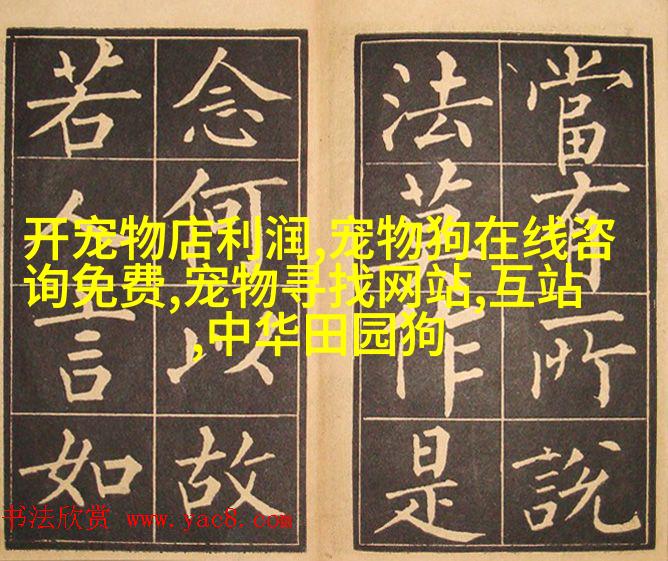 當有所說
法莫作是
念何以故
若人言如
开宠物店利润,宠物狗在线咨
询免费,宠物寻找网站,互站
,中华田园狗
书法欣赏 www.yac8.com